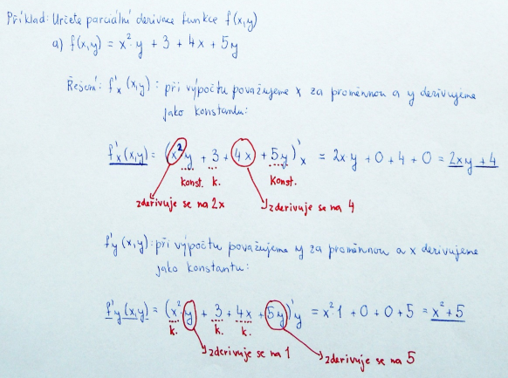 Příklad: Určete parciální derivace funkce f(x,y)
a) f(x,y) = x²·y + 3 + 4x + 5y
Řešení: f'x (x,y): při výpočtu považujeme x za proměnnou a y derivujeme
jako konstantu:
f'x(x,y) = (x²y + 3 + 4x + 5y)'x = 2x·y + 0 + 4 + 0 = 2xy + 4
konst. k. konst.
zderivuje se na 2x zderivuje se na 4
f'y (x,y): při výpočtu považujeme y za proměnnou a x derivujeme
jako konstantu:
f'y(x,y) = (x²·y + 3 + 4x + 5y)'y = x²·1 + 0 + 0 + 5 = x² + 5
k. k. k.
zderivuje se na 1 zderivuje se na 5